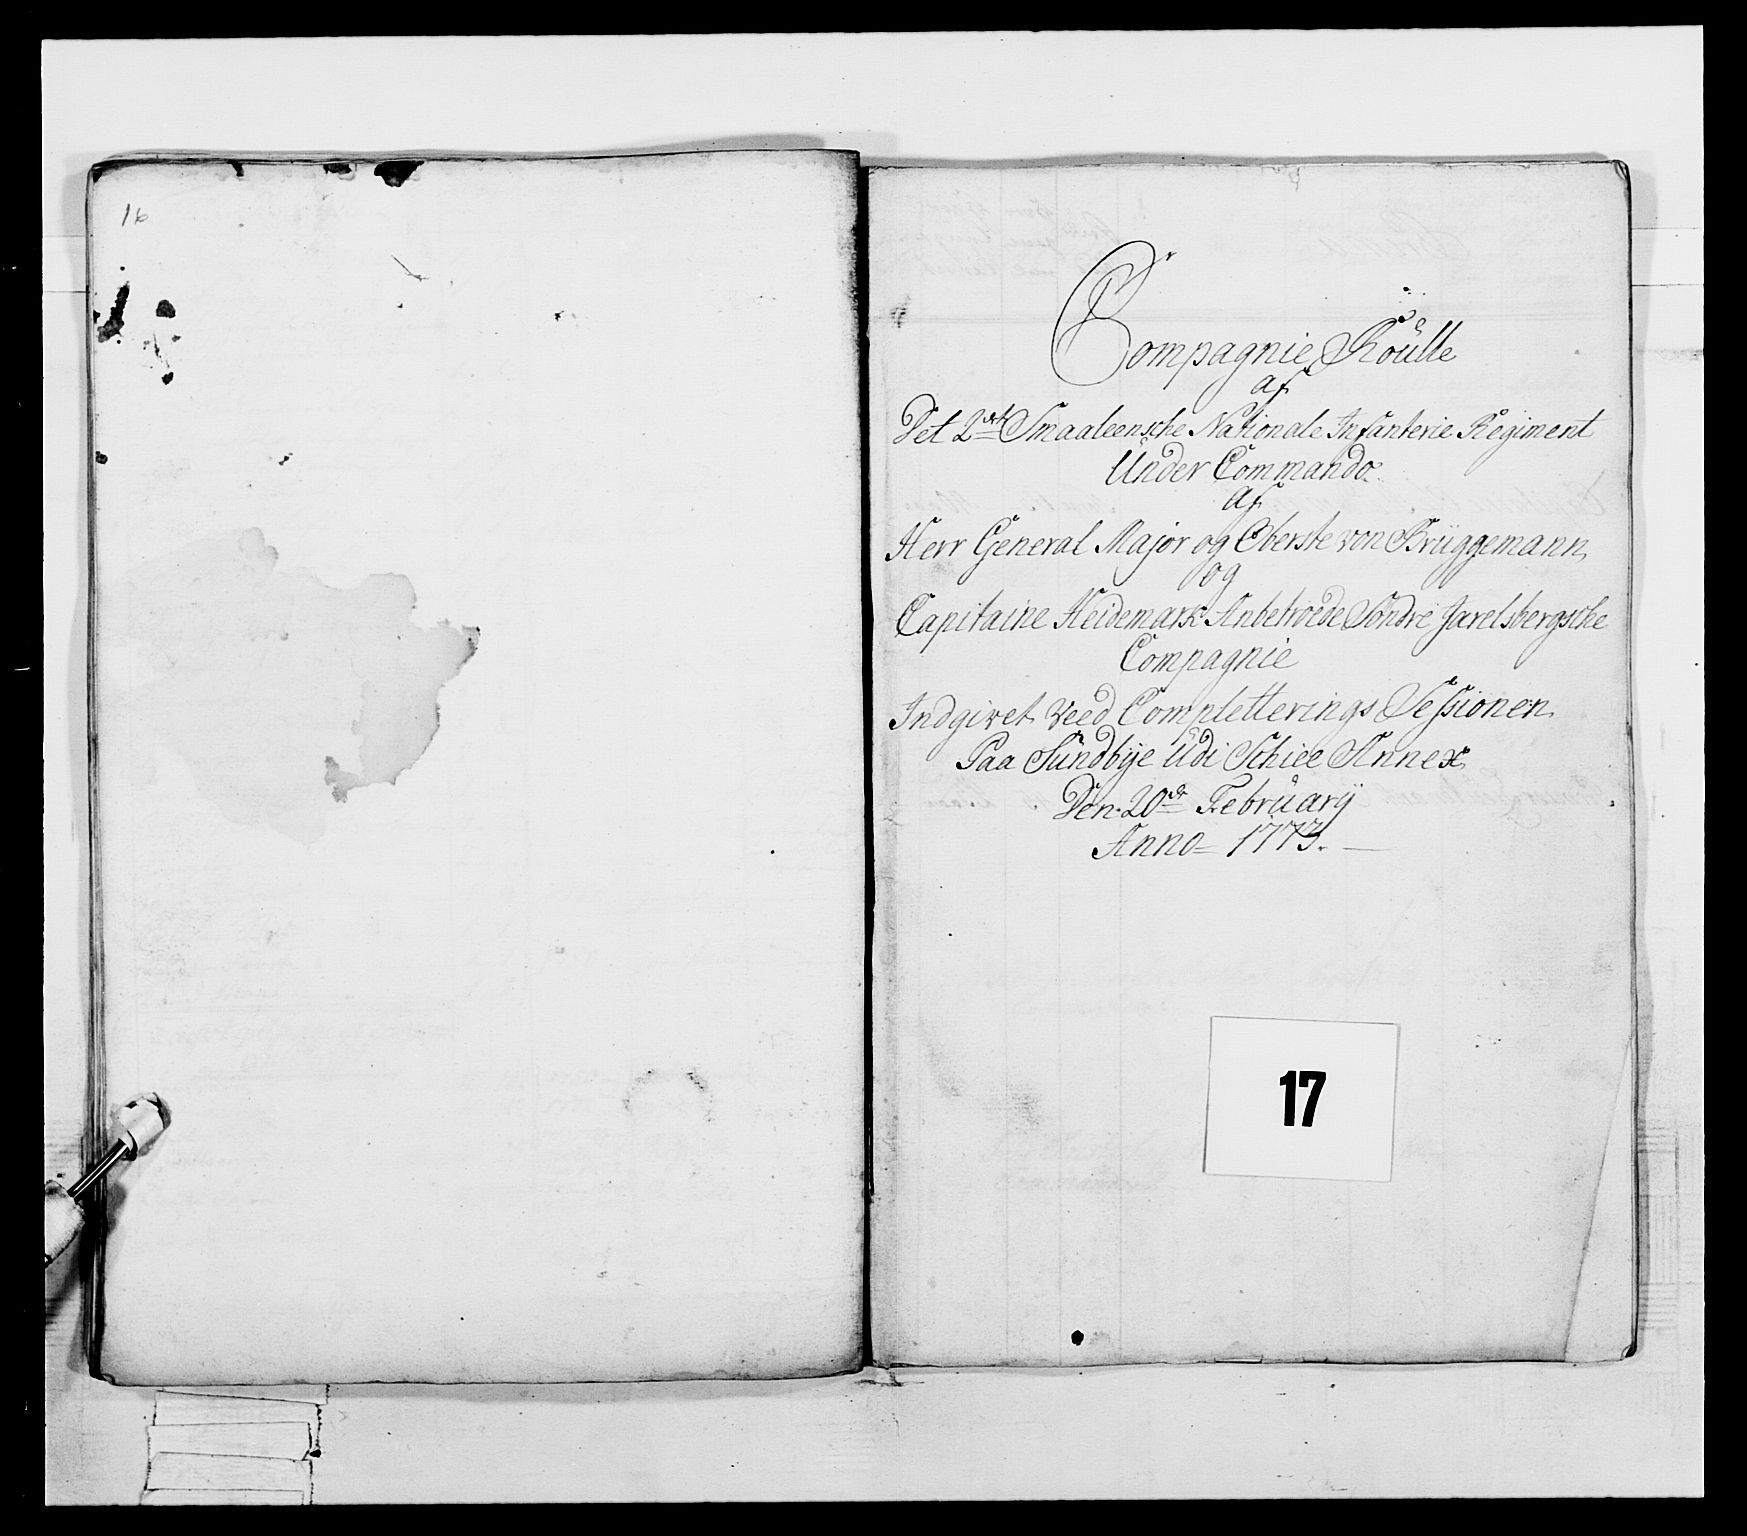 16
Compagnie Roulle
af
Det 2det Smaaleensche Nationale Infanterie Regiment
Under Commando
af
Herr General Major og Oberste von Brüggemann
og
Capitaine Heidemark Anbetroede Söndre Jarelsbergsche
Compagnie
Indgivet veed Completterings Sessionen
Paa Sundbye Udi Schiee Annex
Den 20de February
Anno 1773.
17